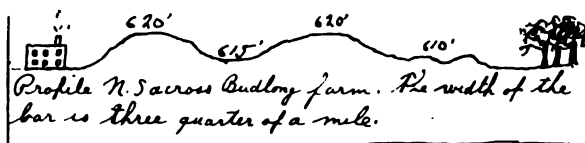 620' 620'
615' 610'
Profile N. S across Budlong farm. The width of the
bar is three quarter of a mile.